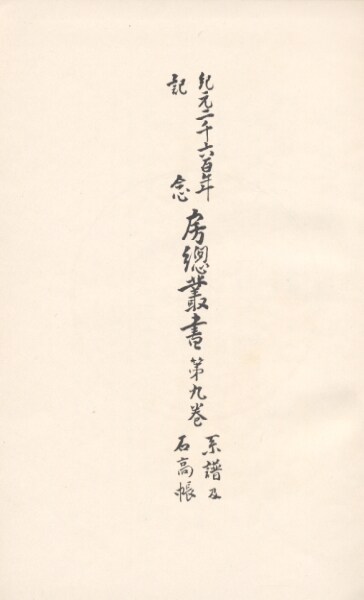 紀元二千六百年
記念
房總叢書第九卷
系譜及
石高帳